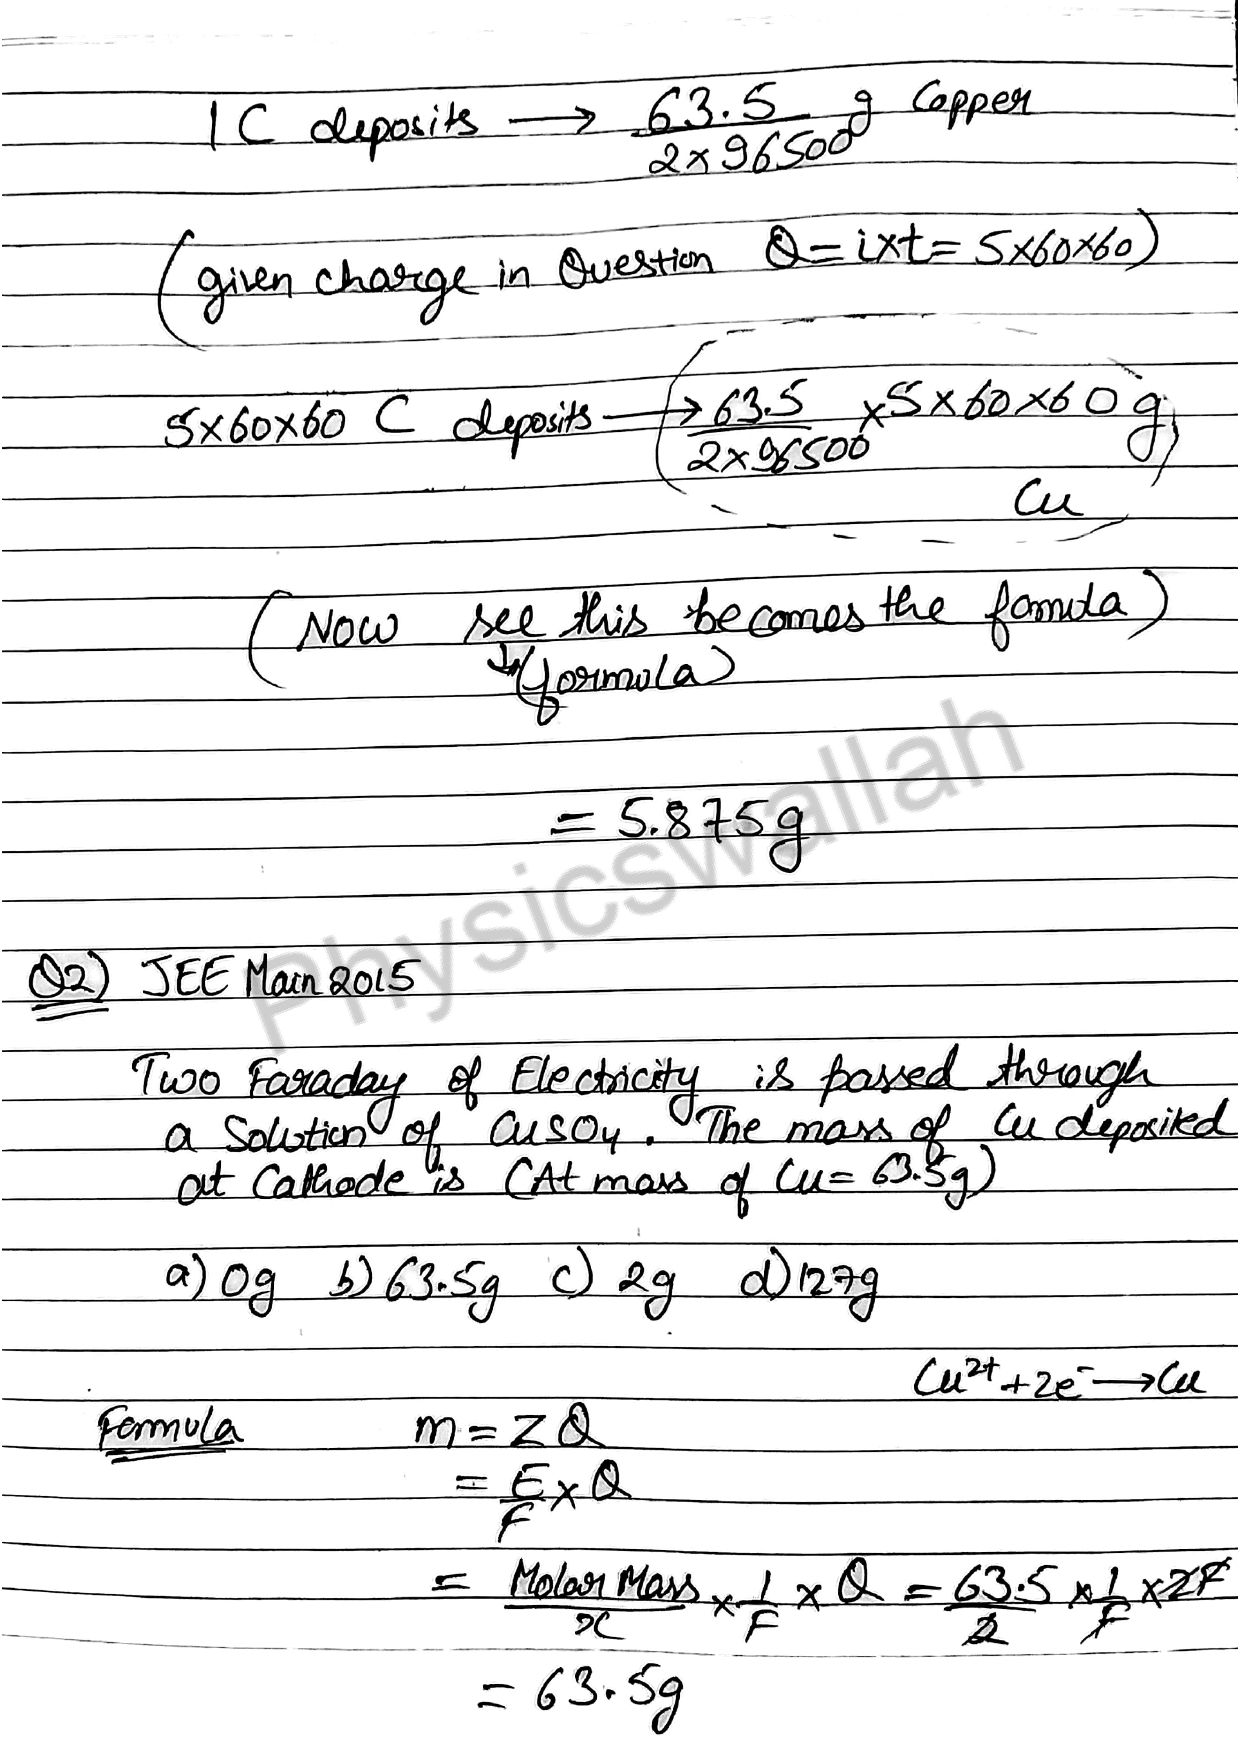 1 C deposits ⟶ 63.5/(2×96500) g Copper
(given charge in Question Q = i×t = 5×60×60)
5×60×60 C deposits ⟶ 63.5/(2×96500) × 5×60×60 g
Cu
(Now see this becomes the fomula)
↳ (formula)
= 5.875g
Physicswallah
Q2) JEE Main 2015
Two Faraday of Electricity is passed through
a Solution of CuSO4. The mass of Cu deposited
at Cathode is (At mass of Cu = 63.5g)
a) 0g b) 63.5g c) 2g d) 127g
Cu²⁺ + 2e⁻ ⟶ Cu
Formula m = ZQ
= E/F × Q
= Molar Mass/x × 1/F × Q = 63.5/2 × 1/F × 2F
= 63.5g